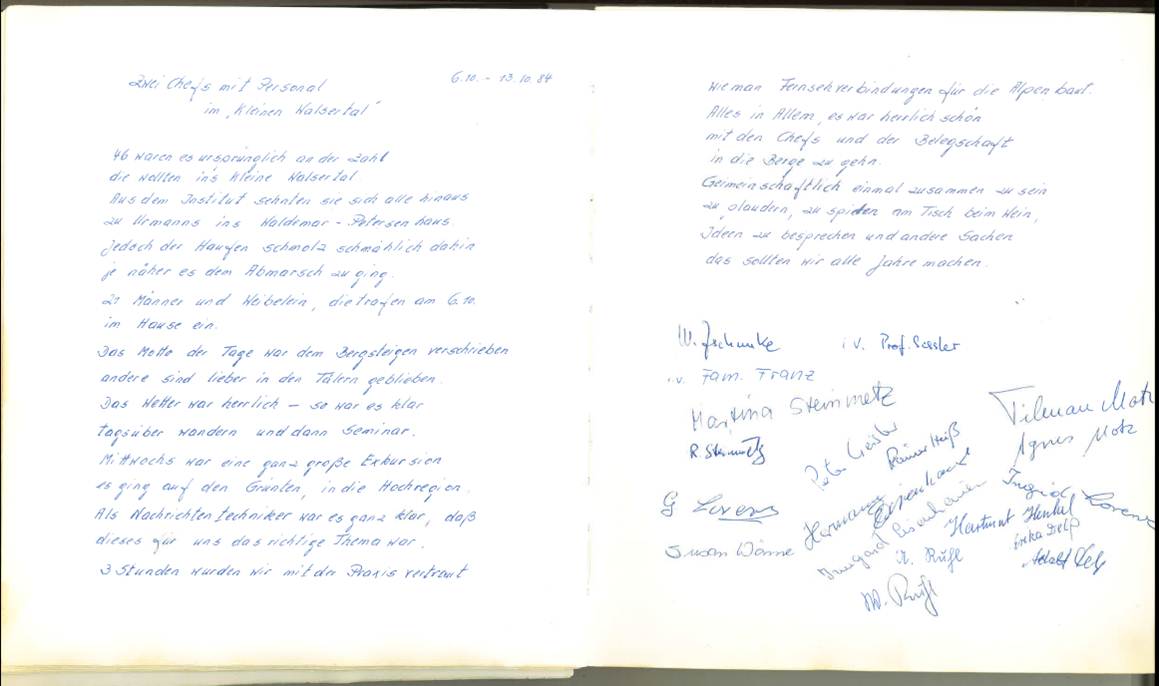 Zwei Chefs mit Personal
6.10. - 13.10.84
im „Kleinen Walsertal"
46 waren es ursprünglich an der Zahl
die wollten in's Kleine Walsertal
Aus dem Institut sehnten sie sich alle hinaus
zu Urmanns ins Waldemar-Petersenhaus.
Jedoch der Haufen schmolz schmählich dahin
je näher es dem Abmarsch zu ging.
21 Männer und Weibelein, die trafen am 6.10.
im Hause ein.
Das Motto der Tage war dem Bergsteigen verschrieben
andere sind lieber in den Tälern geblieben.
Das Wetter war herrlich - so war es klar
tagsüber wandern und dann Seminar.
Mittwochs war eine ganz große Exkursion
es ging auf den Grünten, in die Hochregion.
Als Nachrichtentechniker war es ganz klar, daß
dieses für uns das richtige Thema war.
3 Stunden wurden wir mit der Praxis vertraut
wie man Fernsehverbindungen für die Alpen baut.
Alles in Allem, es war herrlich schön
mit den Chefs und der Belegschaft
in die Berge zu gehn.
Gemeinschaftlich einmal zusammen zu sein
zu plaudern, zu spielen am Tisch beim Wein,
Ideen zu besprechen und andere Sachen
das sollten wir alle Jahre machen.
W. Zschunke
i.V. Prof. Sessler
i.V. Fam. Franz
Martina Steinmetz
Tilman Motz
R. Steinmetz
Agnes Motz
Rainer Heiß
G Lorenz
Hermann
Ingrid Lorenz
Hartmut Henkel
Irmgard
Susan Wönne
A. Rühl
Adolf
W. Rühl